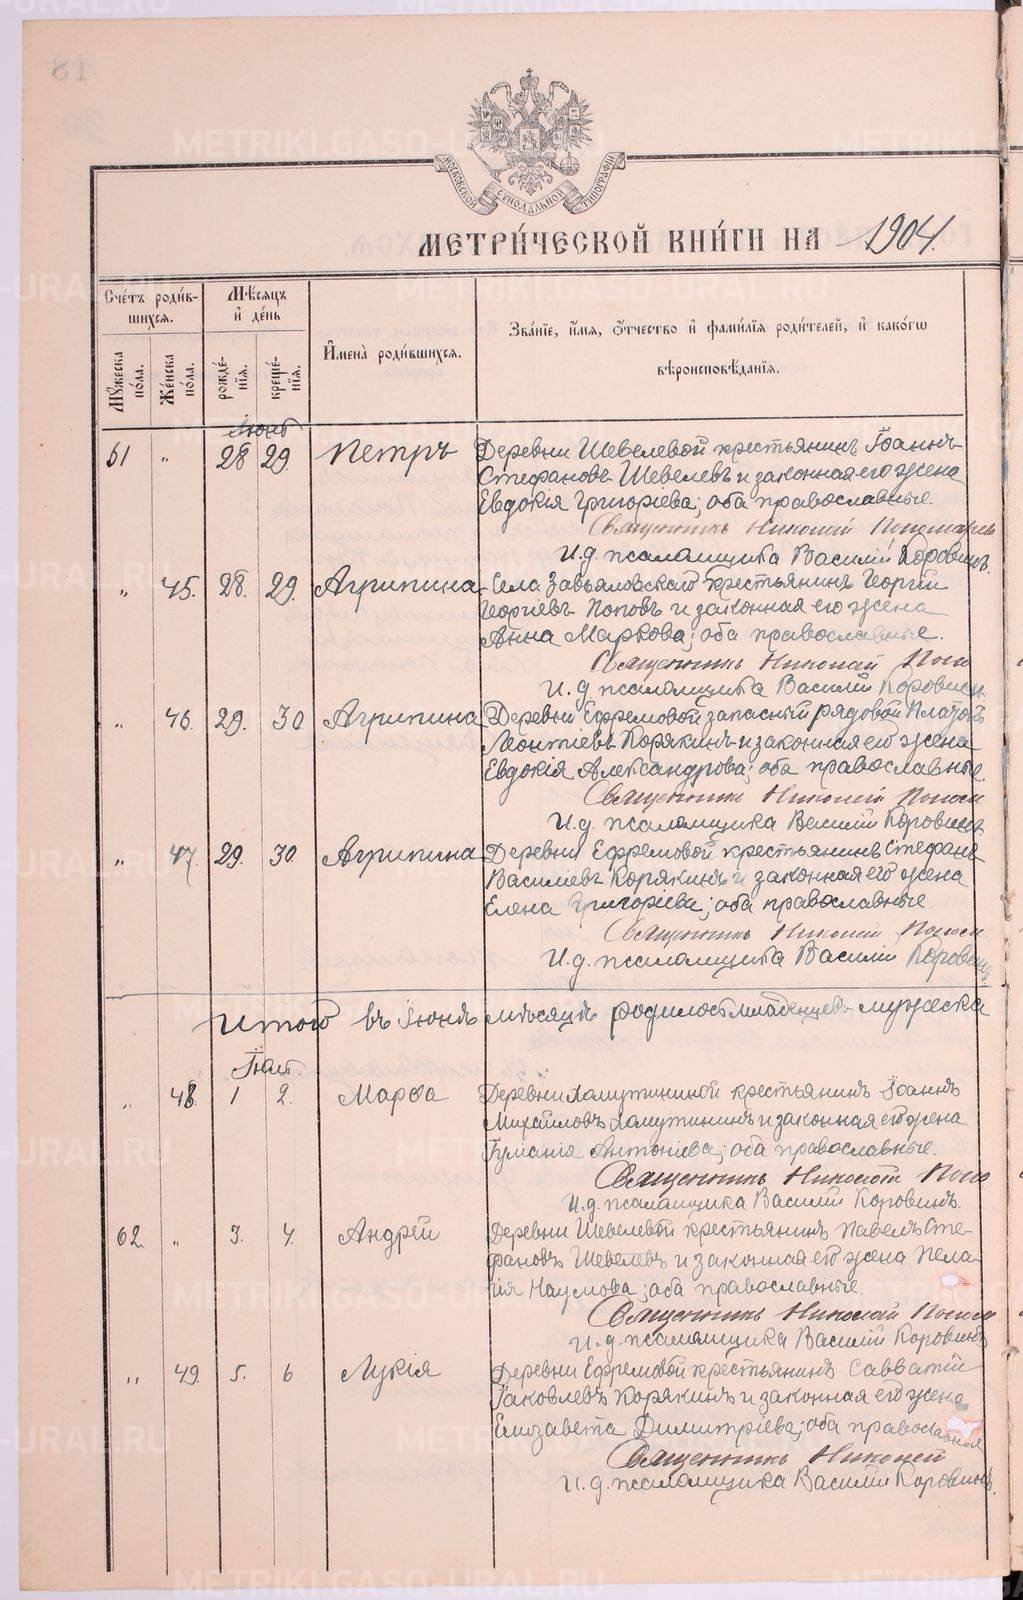 МОСКОВСКОЙ СѴНОДАЛЬНОЙ ТИПОГРАФІИ
МЕТРИ́ЧЕСКОЙ КНИ́ГИ НА 1904.
Сче́тъ роди́в-
шихся.
Мѣ́сяцъ
и҆ де́нь
И҆мена̀ роди́вшихся.
Зва́нїе, и҆́мѧ, ѻ҆́тчество и҆ фами́лїѧ роди́телей, и҆ како́гѡ
вѣроисповѣ́данїѧ.
Мꙋ́жеска по́ла.
Же́нска по́ла.
рожде́нїѧ.
креще́нїѧ.
Іюнь
61 „ 28 29 Петръ Деревни Шевелевой крестьянинъ Іоаннъ
Стефановъ Шевелевъ и законная его жена
Евдокія Григоріева; оба православные.
Священникъ Николай Пономарев
И.д. псаломщика Василій Коровинъ.
„ 45. 28. 29. Агрипина Села Завьяловскаго крестьянинъ Георгій
Георгіевъ Поповъ и законная его жена
Анна Маркова; оба православные.
Священникъ Николай Поно
И.д. псаломщика Василій Коровинъ
„ 46. 29. 30. Агрипина Деревни Ефремовой запасный рядовой Платонъ
Леонтіевъ Корякинъ и законная его жена
Евдокія Александрова; оба православные.
Священникъ Николай Поном
И.д. псаломщика Василій Коровинъ.
„ 47. 29. 30. Агрипина Деревни Ефремовой крестьянинъ Стефанъ
Василіевъ Корякинъ и законная его жена
Елена Григоріева; оба православные.
Священникъ Николай Поном
И.д. псаломщика Василій Коровинъ
Итого въ Іюнѣ мѣсяцѣ родилось младенцевъ мужеска
Іюль.
„ 48. 1 2. Марѳа Деревни Хамутининой крестьянинъ Іоаннъ
Михаиловъ Хамутининъ и законная его жена
Антоніева; оба православные.
Священникъ Николай Поно
И.д. псаломщика Василій Коровинъ.
62. „ 3. 4. Андрей Деревни Шевелевой крестьянинъ Павелъ Сте-
фановъ Шевелевъ и законная его жена Пела-
гія Наумова; оба православные.
Священникъ Николай Поном
И.д. псаломщика Василій Коровинъ
„ 49. 5. 6 Лукія Деревни Ефремовой крестьянинъ Савватій
Іаковлевъ Корякинъ и законная его жена
Елизавета Димитріева; оба православные
Священникъ Николай
И.д. псаломщика Василій Коровинъ.
METRIKI.GASO-URAL.RU